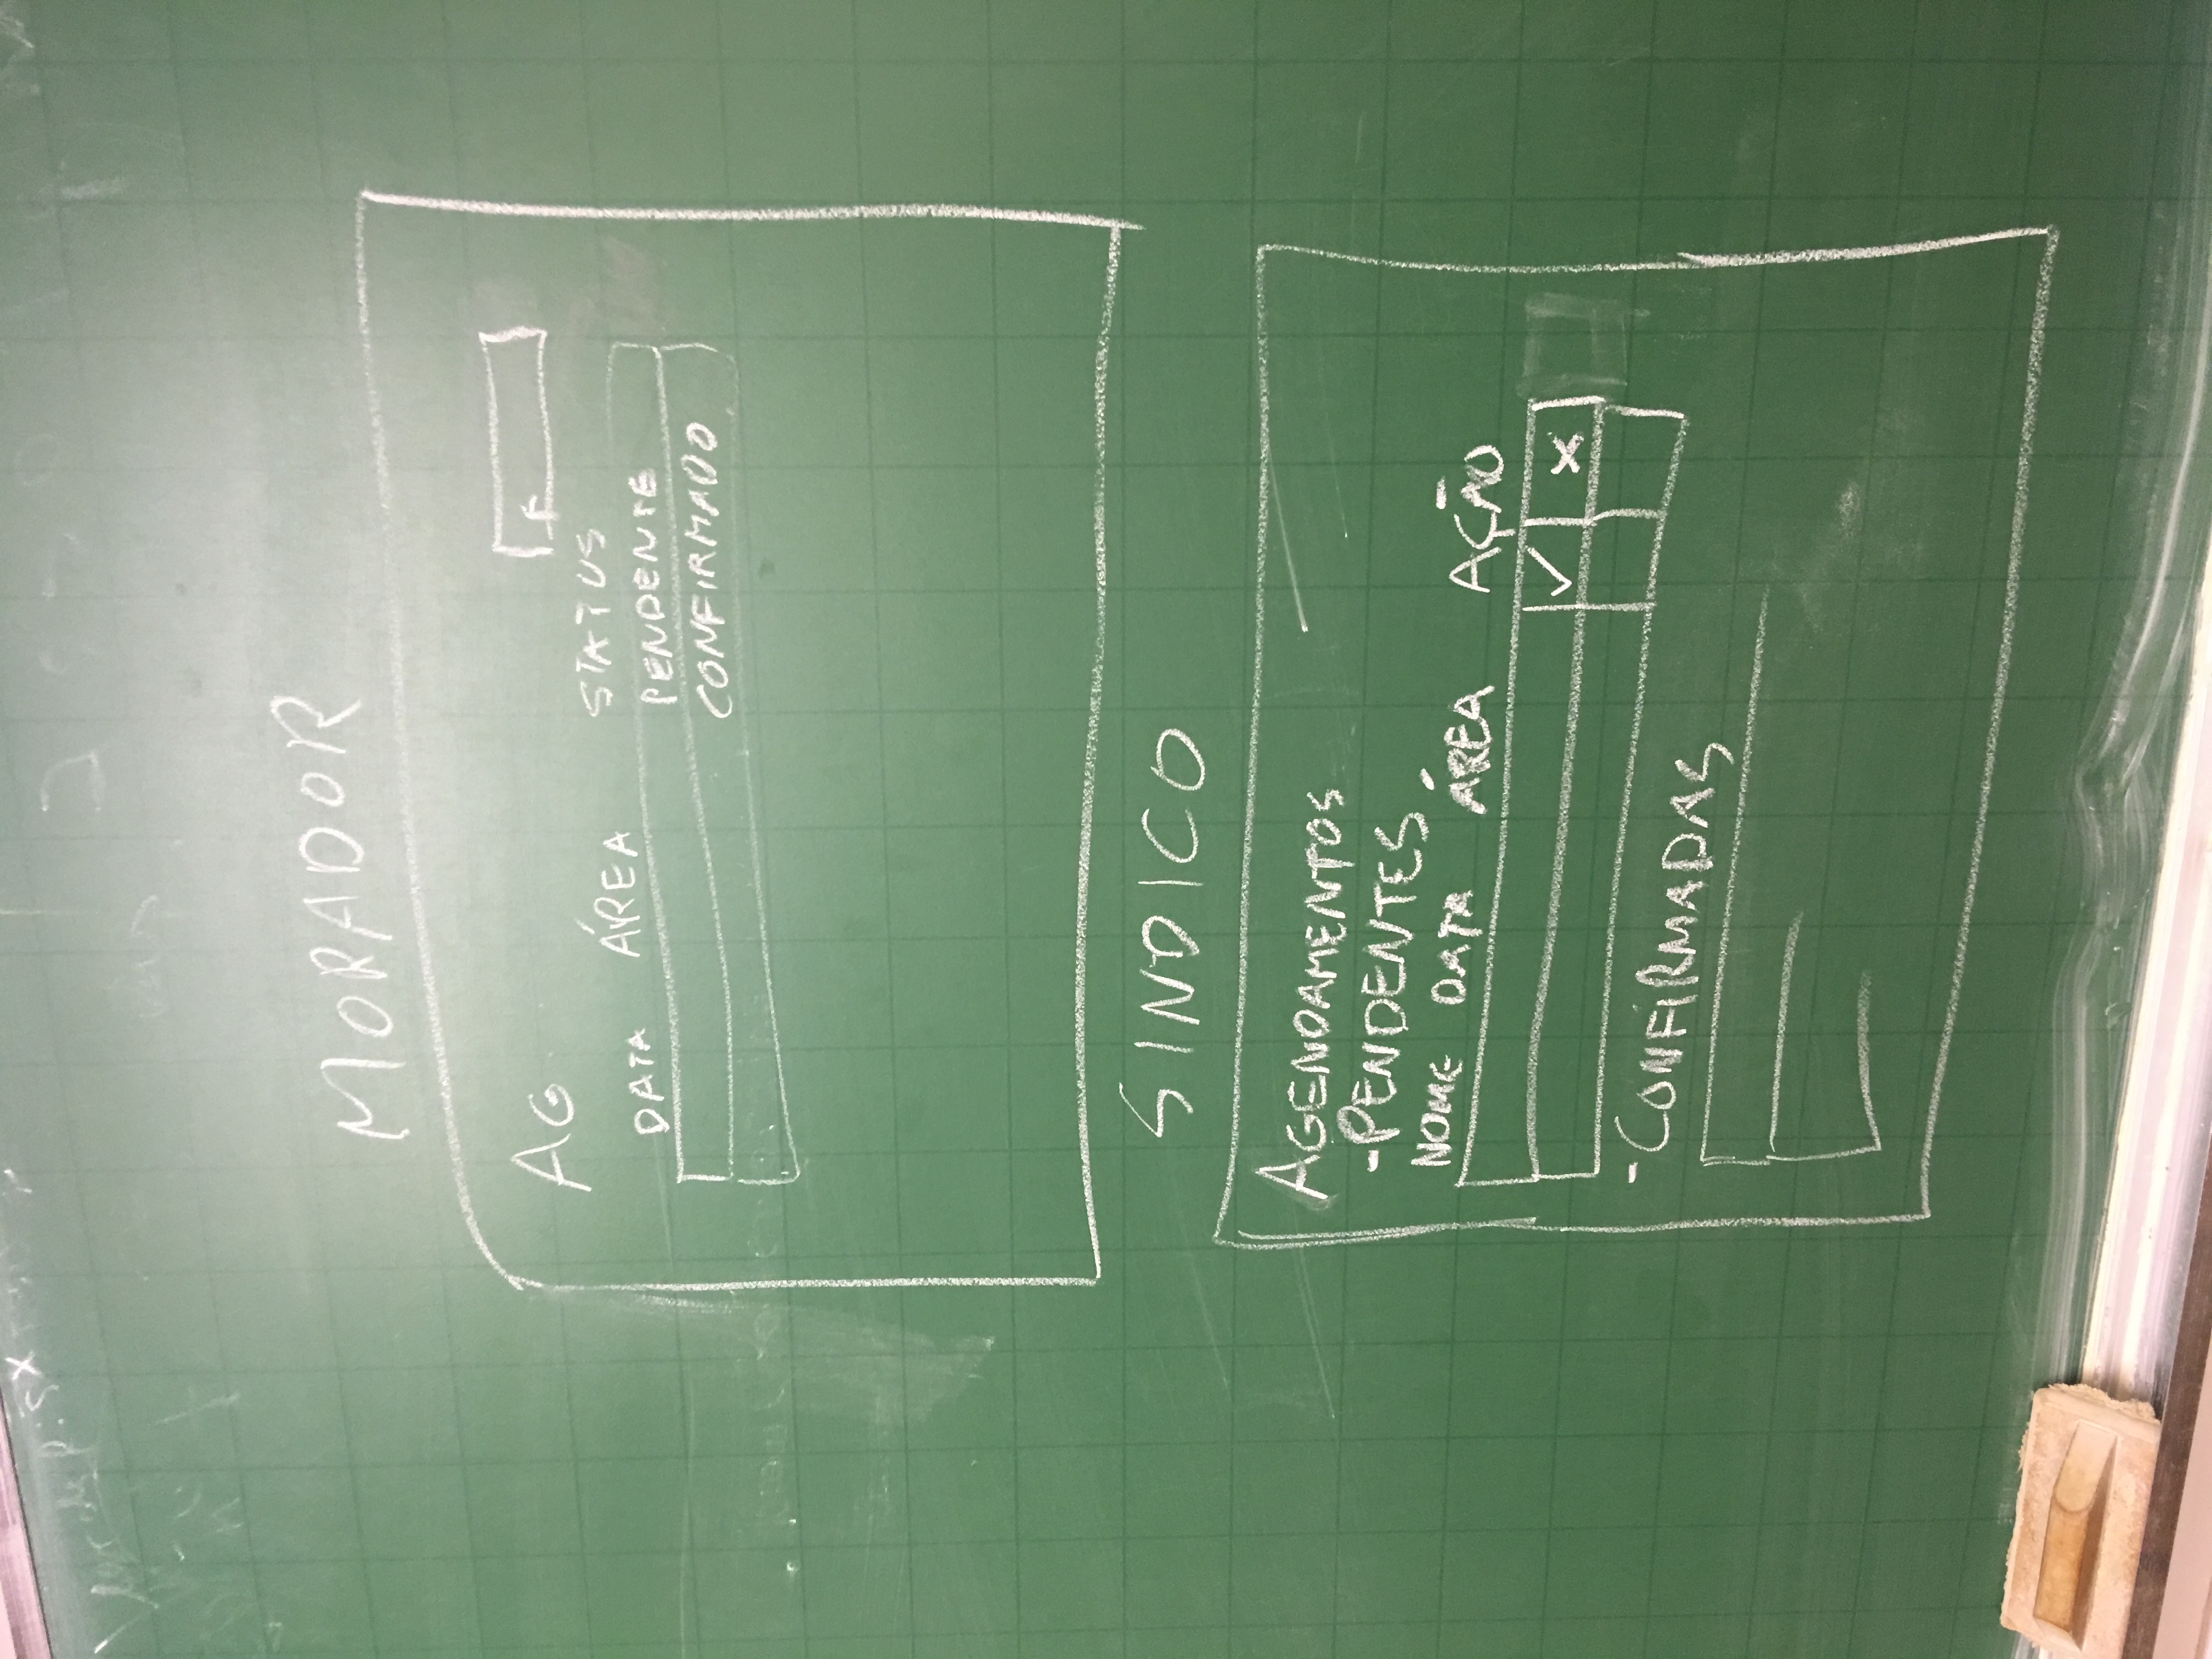 MORADOR
AG +
DATA ÁREA STATUS
PENDENTE
CONFIRMADO
SINDICO
AGENDAMENTOS
-PENDENTES
NOME DATA ÁREA AÇÃO
✓ x
-CONFIRMADAS